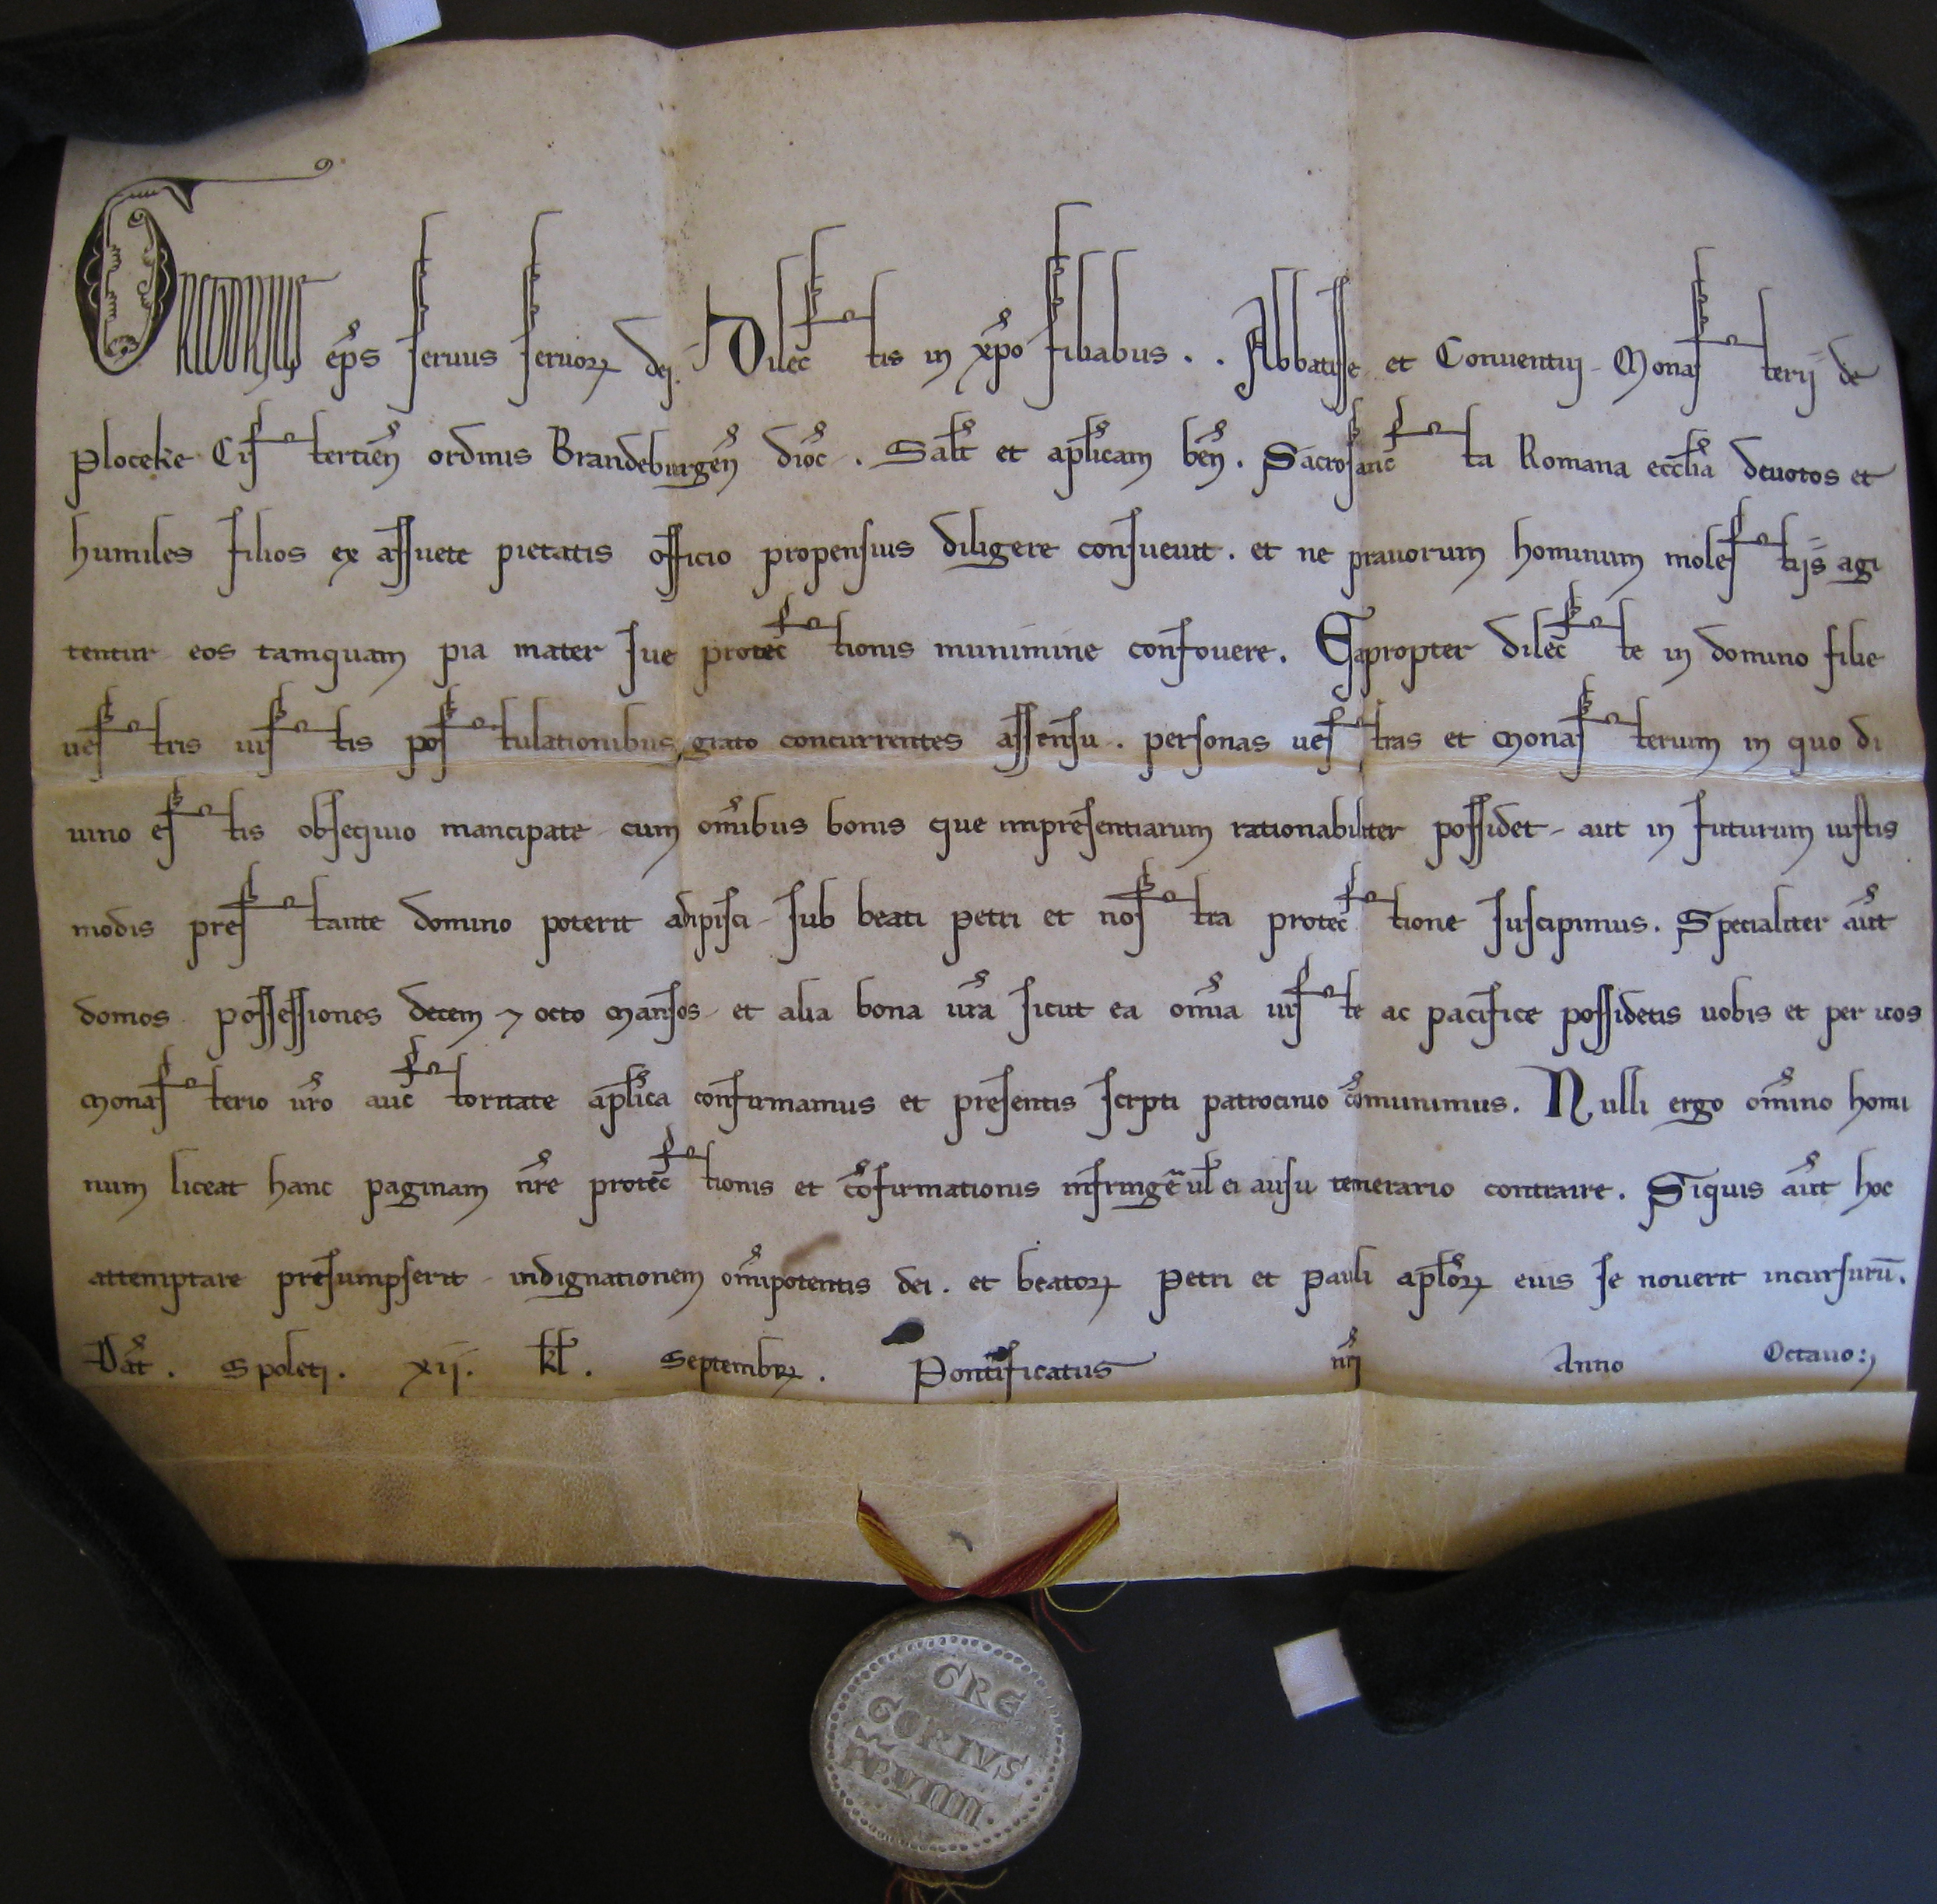 GREGORIUS ep̄s seruus seruoꝝ dei. Dilectis in xp̄o filiabus . . Abbatisse et Conuentui Monasterij de
Ploceke Cistertien̄ ordinis Brandeburgen̄ dioc̄ . Salt̄ et ap̄licam ben̄ . Sacrosancta Romana eccl̄ia deuotos et
humiles filios ex assuete pietatis officio propensius diligere consueuit . et ne prauorum hominum molestijs agi
tentur eos tamquam pia mater sue protectionis munimine confouere . Eapropter dilecte in domino filie
uestris iustis postulationibus grato concurrentes assensu . personas uestras et Monasterium in quo di
uino estis obsequio mancipate cum om̄ibus bonis que impresentiarum rationabiliter possidet aut in futurum iustis
modis prestante domino poterit adipisci sub beati Petri et nostra protectione suscipimus . Specialiter aūt
domos possessiones decem ⁊ octo Mansos et alia bona ur̄a sicut ea om̄ia iuste ac pacifice possidetis uobis et per uos
Monasterio ur̄o auctoritate ap̄lica confirmamus et presentis scripti patrocinio cōmunimus . Nulli ergo om̄ino homi
num liceat hanc paginam nr̄e protectionis et cōfirmationis infringe᷑ ul̄ ei ausu temerario contraire . Siquis aūt hoc
attemptare presumpserit indignationem om̄ipotentis dei . et beatoꝝ Petri et Pauli apl̄oꝝ eius se nouerit incursurū .
Dat̄ . Spoleti . xij . kl̄ . Septembꝝ . Pontificatus nr̄i Anno Octauo :
GRE
GORIVS
PP . VIIII .